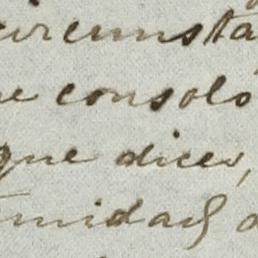 circunsta
e consoló
que dices,
unidad